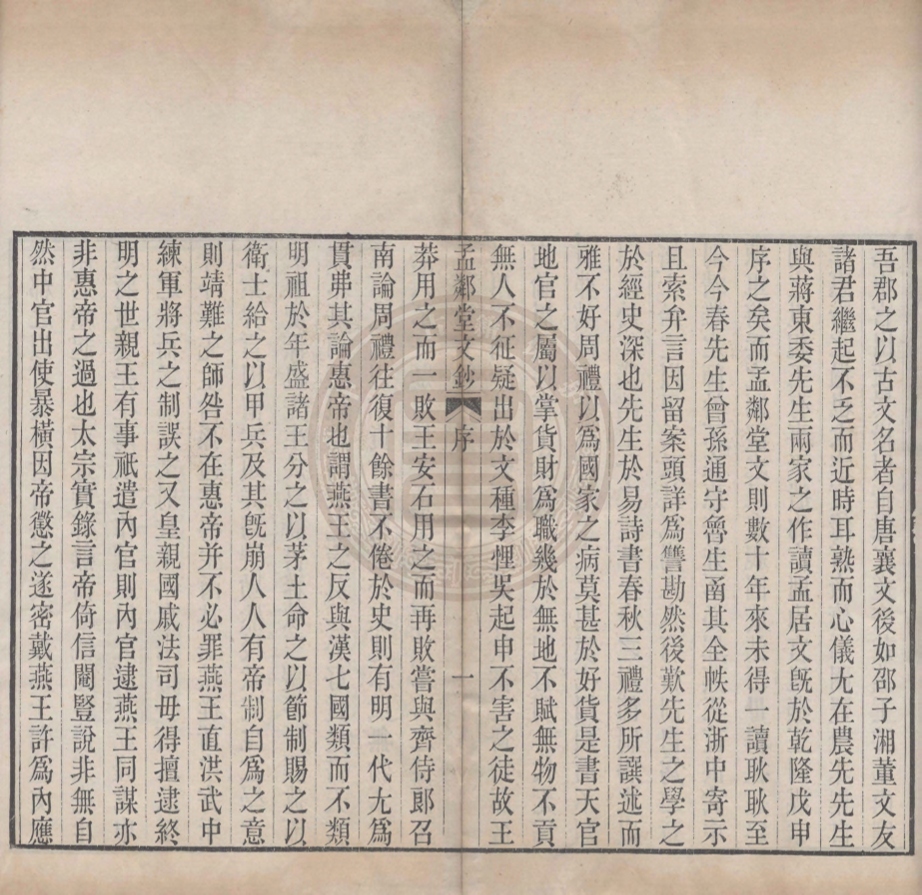 吾郡之以古文名者自唐襄文後如邵子湘董文友
諸君繼起不乏而近時耳熟而心儀尢在農先先生
與蔣東委先生兩家之作讀孟居文旣於乾隆戊申
序之矣而孟鄰堂文則數十年來未得一讀耿耿至
今今春先生曾孫通守魯生甫其全帙從浙中寄示
且索弁言因留案頭詳爲讐勘然後歎先生之學之
於經史深也先生於易詩書春秋三禮多所譔述而
雅不好周禮以爲國家之病莫甚於好貨是書天官
地官之屬以掌貨財爲職幾於無地不賦無物不貢
無人不征疑出於文種李悝吳起申不害之徒故王
孟鄰堂文鈔 序 一
莽用之而一敗王安石用之而再敗嘗與齊侍郞召
南論周禮往復十餘書不倦於史則有明一代尢爲
貫弗其論惠帝也謂燕王之反與漢七國類而不類
明祖於年盛諸王分之以茅土命之以節制賜之以
衛士給之以甲兵及其旣崩人人有帝制自爲之意
則靖難之師咎不在惠帝并不必罪燕王直洪武中
練軍將兵之制誤之又皇親國戚法司毋得擅逮終
明之世親王有事祇遣內官則內官逮燕王同謀亦
非惠帝之過也太宗實錄言帝倚信閹豎說非無自
然中官出使暴橫因帝懲之遂密戴燕王許爲內應